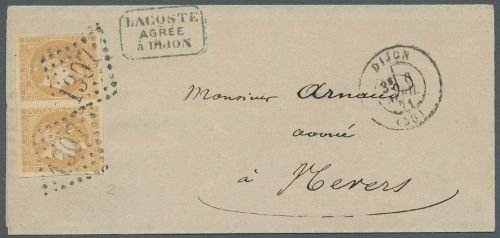 LACOSTE
AGRÉE
À DIJON
DIJON
71
(20)
1307
1307
Monsieur Arnaud
avoué
à Nevers
2